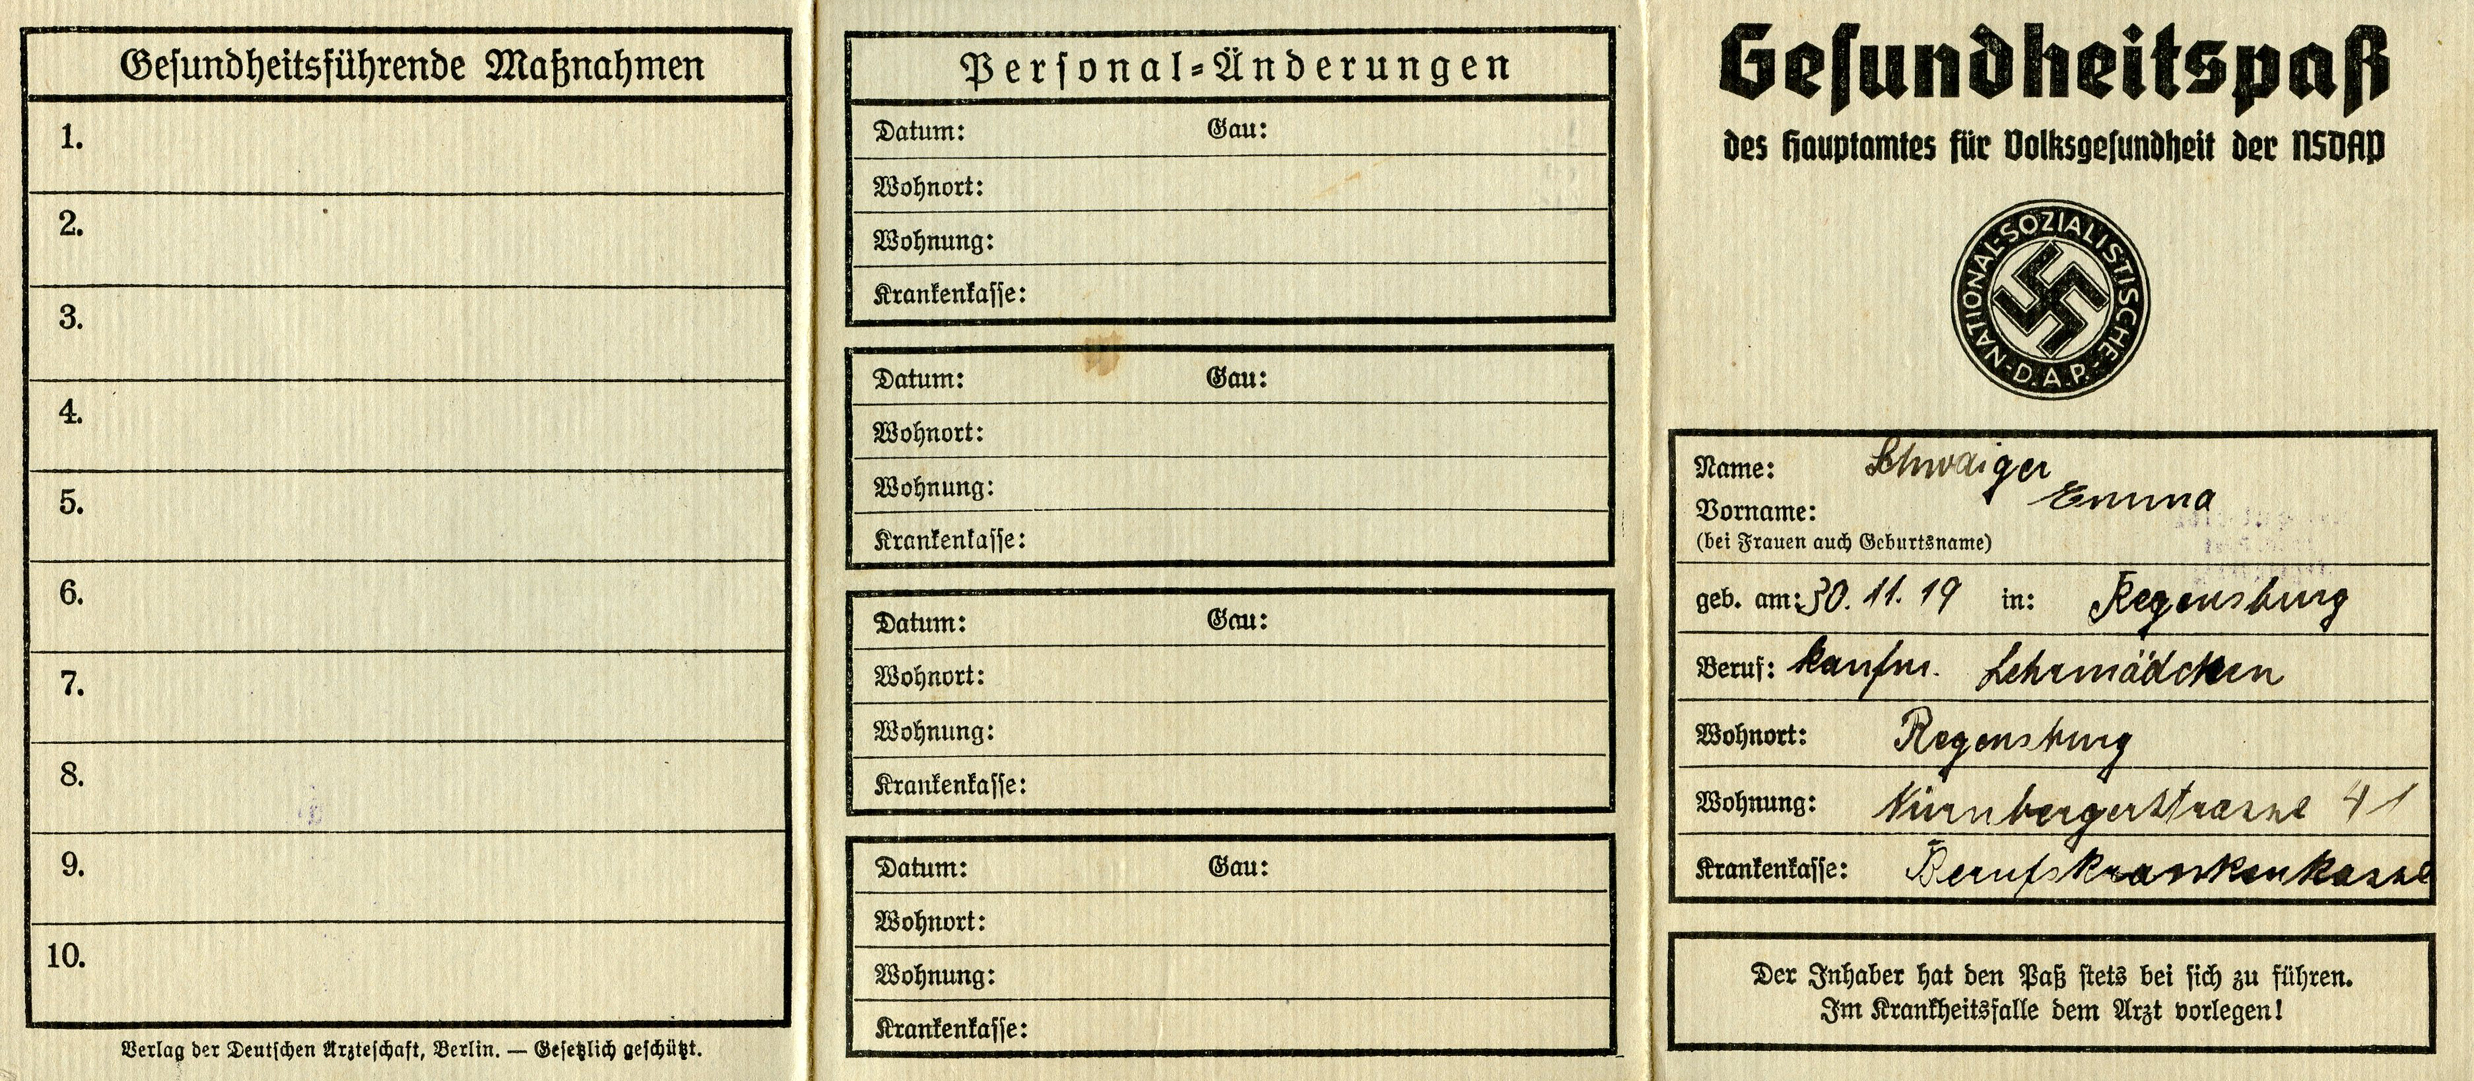 Gesundheitsführende Maßnahmen
1.
2.
3.
4.
5.
6.
7.
8.
9.
10.
Verlag der Deutschen Ärzteschaft, Berlin. — Gesetzlich geschützt.
Personal-Änderungen
Datum: Gau:
Wohnort:
Wohnung:
Krankenkasse:
Datum: Gau:
Wohnort:
Wohnung:
Krankenkasse:
Datum: Gau:
Wohnort:
Wohnung:
Krankenkasse:
Datum: Gau:
Wohnort:
Wohnung:
Krankenkasse:
Gesundheitspaß
des Hauptamtes für Volksgesundheit der NSDAP
NATIONAL-SOZIALISTISCHE-D.A.P.-
Name: Schwaiger
Emma
Vorname:
(bei Frauen auch Geburtsname)
geb. am: 30. 11. 19 in: Regensburg
Beruf: kaufm. Lehrmädchen
Wohnort: Regensburg
Wohnung: Nürnbergerstrasse 41
Krankenkasse: Berufskrankenkasse
Der Inhaber hat den Paß stets bei sich zu führen.
Im Krankheitsfalle dem Arzt vorlegen!